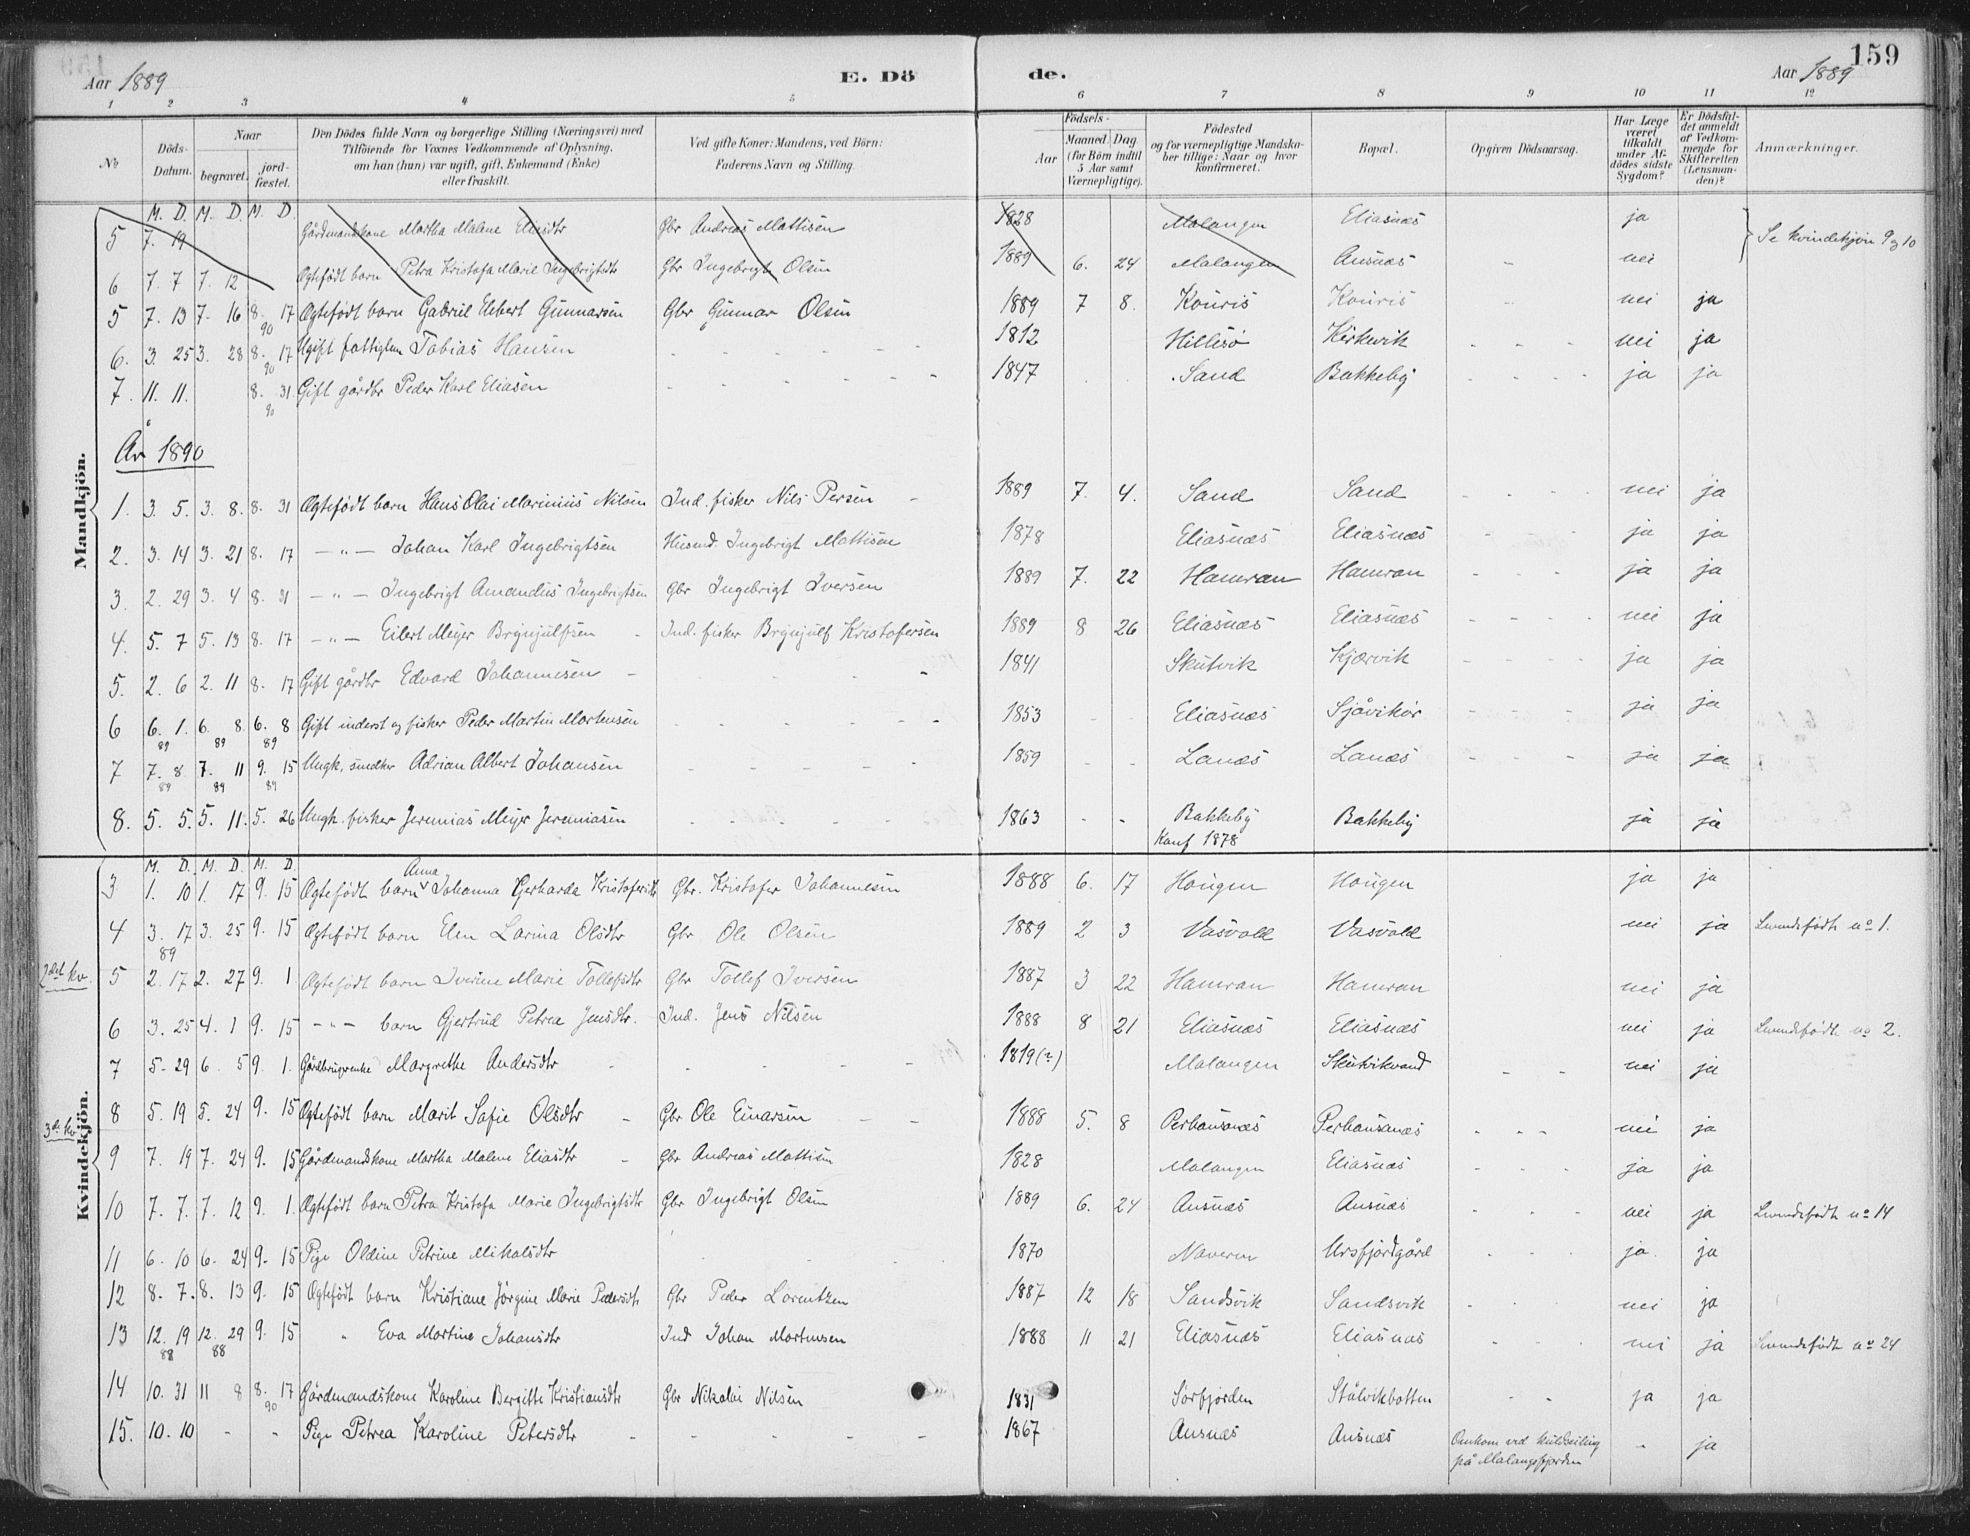 159
Aar 1889 E. Dö de. Aar 1889
1 2 3 4 5 6 7 8 9 10 11 12
No Döds-Datum. Naar begravet. jordfæstet. Den Dödes fulde Navn og borgerlige Stilling (Næringsvei) med Tilföiende for Voxnes Vedkommende af Oplysning, om han (hun) var ugift, gift, Enkemand (Enke) eller fraskilt. Ved gifte Koner: Mandens, ved Börn: Faderens Navn og Stilling. Aar Födsels- Maaned. Dag (for Börn indtil 5 Aar samt Værnepligtige). Födested og for værnepligtige Mandskaber tillige: Naar og hvor konfirmeret. Bopæl. Opgiven Dödsaarsag. Har Læge været tilkaldt under Afdödes sidste Sygdom? Er Dödsfaldet anmeldt af Vedkommende for Skifteretten (Lensmanden)? Anmærkninger.
Mandkjön.
M. D. M. D. M. D.
5 7. 19 Gårdmandskone Martha Malene Eliasdtr Gbr Andreas Mattisen 1828 Malangen Eliasnæs ja Se kvindekjön 9 og 10
6 7. 7 7. 12 Ægtefödt barn Petra Kristofa Marie Ingebrigtsdtr Gbr Ingebrigt Olsen 1889 6. 24 Malangen Ansnæs - nei
5 7. 13 7. 16 8. 17 90 Ægtefödt barn Gabriel Elbert Gunnarsen Gbr Gunnar Olsen 1889 7 8. Kouris Kouris - nei ja
6. 3. 25 3. 28 8. 17 90 Ugift fattiglem Tobias Hansen 1812 Hillesö Kirkevik - - - nei ja
7. 11. 11. 8. 31. 90 Gift gårdbr Peder Karl Eliasen 1847 Sand Bakkeby - - - ja ja
År 1890
1. 3. 5. 3. 8. 8. 31 Ægtefödt barn Hans Olai Marinius Nilsen Ind. fisker Nils Persen 1889 7. 4. Sand Sand - - - nei ja
2. 3. 14 3. 21 8. 17 - " - Johan Karl Ingebrigtsen Husmd. Ingebrigt Mattisen 1878 Eliasnæs Eliasnæs - - ja ja
3. 2. 29 3. 4 8. 31 - " - Ingebrigt Amandus Ingebrigtsen Gbr Ingebrigt Iversen 1889 7. 22 Hamran Hamran - - - ja ja
4. 5. 7 5. 13 8. 17 - " - Eilert Meyer Brynjulfsen Ind. fisker Brynjulf Kristofersen 1889 8 26 Eliasnæs Eliasnæs - - - nei ja
5. 2. 6 2. 11 8. 17 Gift gårdbr Edvard Johannesen 1841 Skutvik Kjærvik - - - ja ja
6 6. 1. 89 6. 8. 89 6. 8 89 Gift inderst og fisker Peder Martin Mortensen 1853 - - Eliasnæs Sjåvikör - - - ja ja
7 7. 8 89 7. 11 89 9. 15 89 Ungk. snedker Adrian Albert Johansen 1859 Lanæs Lanæs - - - ja ja
8. 5. 5. 5. 11. 5. 26 Ungk. fisker Jeremias Meyer Jeremiasen 1863 - - Bakkeby Bakkeby ja ja
Konf 1878
Kvindekjön.
M. D. M. D. M. D Anna
3 1. 10 1. 17 9. 15 Ægtefödt barn Johanna Gerharda Kristofersdtr Gbr. Kristofer Johannesen 1888 6. 17 Hougen Hougen ja ja
4 3. 17 89 3. 25 9. 15 Ægtefödt barn Elen Larina Olsdtr Gbr Ole Olsen 1889 2 3 Vasvold Vasvold nei ja Levendefödte no 1.
2det kv. 5 2. 17 2. 27 9. 1 Ægtefödt barn Iverine Marie Tollefsdtr Gbr Tollef Iversen 1887 3 22 Hamran Hamran nei ja
6 3. 25 4. 1 9. 15 - " - barn Gjertrud Petrea Jensdtr. Ind. Jens Nilsen 1888 8 21 Eliasnæs Eliasnæs nei ja Levendefödte no 2.
7 5- 29 6. 5 9. 1. Gårdbrugerenke Margrethe Andersdtr 1819 (?) Malangen Skutvikvand - - nei ja
3die kv 8 5. 19 5. 24 9. 15 Ægtefödt barn Marit Sofie Olsdtr Gbr Ole Einarsen 1888 5. 8 Perhansnæs Perhansnæs - - - nei ja
9 7. 19 7. 24 9. 15 Gårdmandskone Martha Malene Eliasdtr Gbr Andreas Mattisen 1828 Malangen Eliasnæs - - - ja ja
10 7. 7. 7. 12 9. 1. Ægtefödt barn Petra Kristofa Marie Ingebrigtsdtr Gbr Ingebrigt Olsen 1889 6. 24 Ansnæs Ansnæs - - - nei ja Levendefödte no 14
11 6. 10 6. 24 9. 15 Pige Oldine Petrine Mikalsdtr 1870 Naveren Ursfjordgård - - - ja. ja
12 8. 7. 8. 13 9. 15 Ægtefödt barn Kristiane Jörgine Marie Pedersdtr Gbr Peder Lorentzen 1887 12 18 Sandsvik Sandsvik - - - nei ja
13 12. 19 88 12. 29 88 9. 15 " Eva Martine Johansdtr Ind Johan Mortensen 1888 11 21 Eliasnæs Eliasnæs - - - nei ja Levendefödte no 24
14 10. 31 11 8 8. 17 90 Gårdmandskone Karoline Bergitte Kristiansdtr Gbr Nikolai Nilsen 1831 Sörfjorden Stålvikbotten - - ja ja
15. 10. 10 - - Pige Petrea Karoline Petersdtr 1867 Ansnæs Ansnæs Omkom ved kuldseiling - ja
på Malangsfjorden